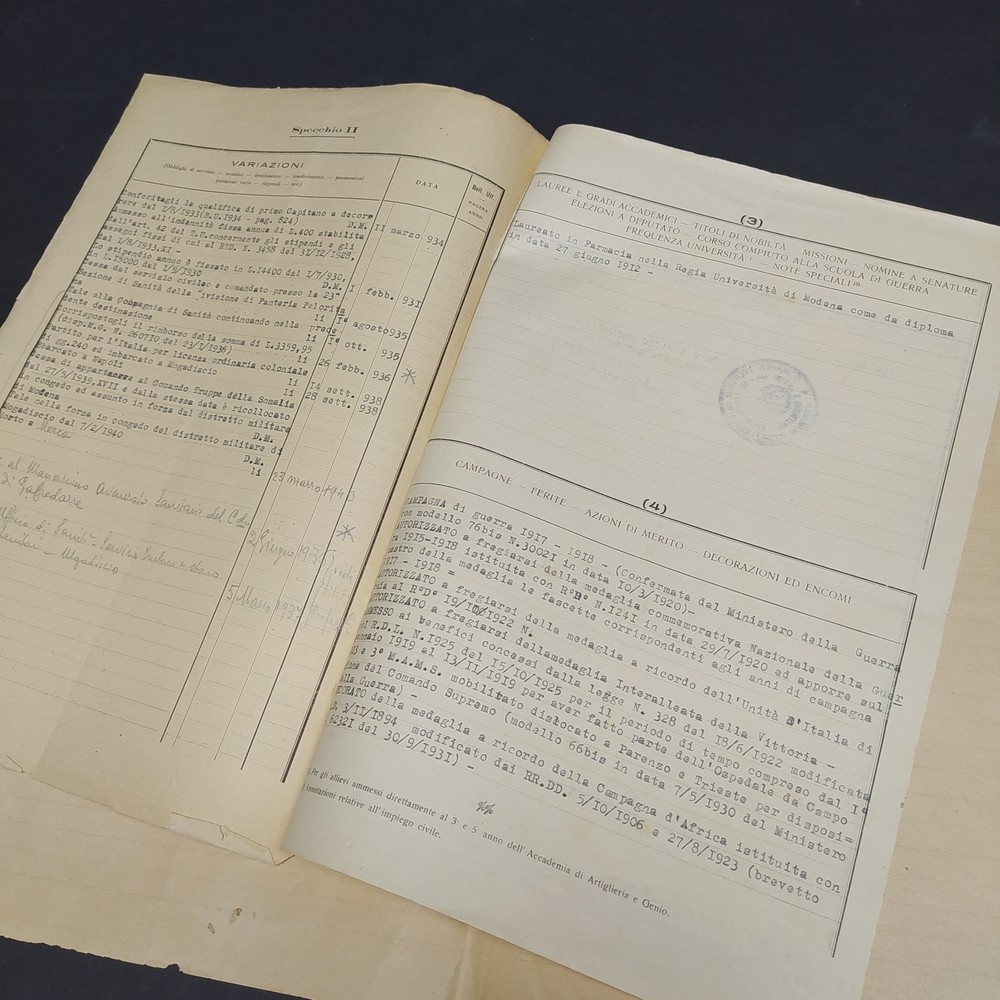 Specchio II
VARIAZIONI
DATA
Boll. Uff.
PAGINA
ANNO
Conferitagli la qualifica di primo Capitano a decor=
rere dal I/8/1933(B.U.1934 - pag. 824) D.M. II marzo 934
Ammesso all'indennità fissa annua di L.400 stabilita
dall'art. 42 del T.U.concernente gli stipendi e gli
assegni fissi di cui al R°D. N. 3458 del 31/12/1928,
dal I/8/1933.XI -
Lo stipendio annuo è fissato in L.14400 dal I/7/930,
in L.15000 dal I/9/1930 D.M. I febb. 931
Cessa dal servizio civile e comandato presso la 23^
Sezione di Sanità della Divisione di Fanteria Peloritana
li I° agosto 935
Tale alla Compagnia di Sanità continuando nella prece=
dente destinazione li I° ott. 935
Corrispostogli il rimborso della somma di L.3359,95
(disp.M.G. N. 260710 del 23/1/1936) li 26 febb. 936
Partito per l'Italia per licenza ordinaria coloniale
di gg.240 ed imbarcato a Mogadiscio li 14 sett. 938
Sbarcato a Napoli li 28 sett. 938
Cessa di appartenere al Comando Truppe della Somalia
dal 27/5/1939.XVII e dalla stessa data è ricollocato
in congedo ed assunto in forza dal distretto militare
di Modena D.M.
Tale nella forza in congedo del distretto militare di
Mogadiscio dal 7/2/1940 D.M.
Morto a Merca li 23 marzo 194
al Magazzino Avanzato Sanitario del C.do
di Gafredarre 2 Giugno 193
Ufficio di Sanità
Mogadiscio 5 Marzo 1937
(3)
LAUREE E GRADI ACCADEMICI — TITOLI DI NOBILTÀ — MISSIONI — NOMINE A SENATORE
ELEZIONI A DEPUTATO — CORSO COMPIUTO ALLA SCUOLA DI GUERRA
FREQUENZA UNIVERSITÀ — NOTE SPECIALI
Laureato in Farmacia nella Regia Università di Modena come da diploma
in data 27 giugno 1912 -
(4)
CAMPAGNE — FERITE — AZIONI DI MERITO — DECORAZIONI ED ENCOMI
CAMPAGNA di guerra 1917 - 1918 - (Confermata dal Ministero della Guerra
con modello 76bis N.30021 in data 10/3/1920)-
AUTORIZZATO a fregiarsi della medaglia commemorativa Nazionale della Guer
ra 1915-1918 istituita con R°D° N.1241 in data 29/7/1920 ed apporre sul
nastro della medaglia le fascette corrispondenti agli anni di campagna
1917 - 1918 =
AUTORIZZATO a fregiarsi della medaglia a ricordo dell'Unità d'Italia di
cui al R°D° 19/10/1922 N.
AUTORIZZATO a fregiarsi dellamedaglia Interalleata della Vittoria -
AMMESSO ai benefici concessi dalla legge N. 328 del 18/6/1922 modificata
dal R.D.L. N.1925 del 15/10/1925 per il periodo di tempo compreso dal I°
gennaio 1919 al 13/11/1919 per aver fatto parte dell'Ospedale da Campo
e 3° M.A.M.S. mobilitato dislocato a Parenzo e Trieste per disposi=
zione del Comando Supremo (modello 66bis in data 7/5/1930 del Ministero
della Guerra) -
DECORATO della medaglia a ricordo della Campagna d'Africa istituita con
R.D. 3/11/1894 modificato dai RR.DD. 5/10/1906 e 27/8/1923 (brevetto
62321 del 30/9/1931) -
Per gli allievi ammessi direttamente al 3° e 5° anno dell'Accademia di Artiglieria e Genio.
Annotazioni relative all'impiego civile.